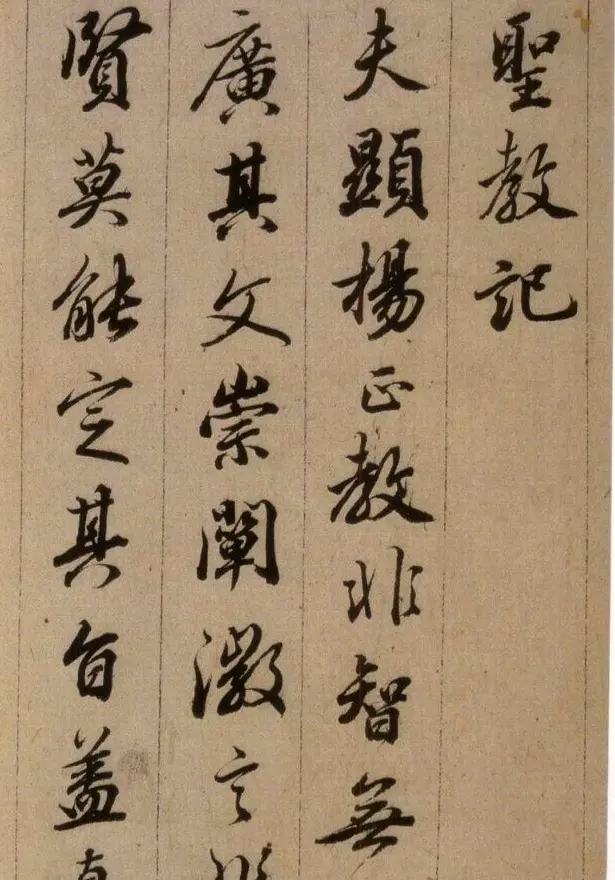 聖教記
夫顯揚正教非智無
廣其文崇闡微言非
賢莫能定其旨蓋真